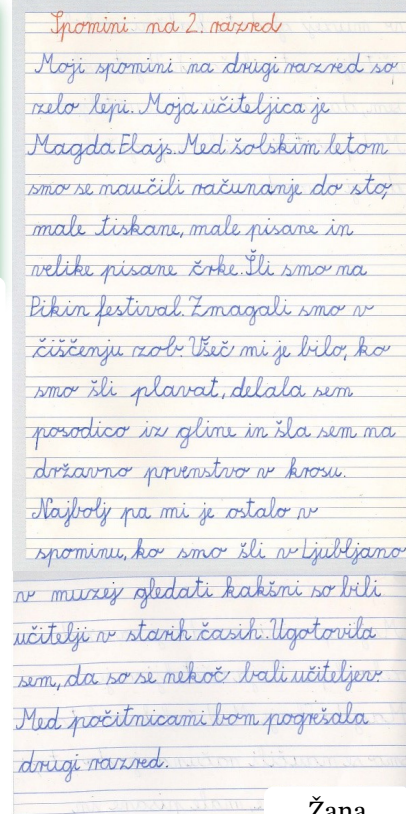 Spomini na 2. razred
Moji spomini na drugi razred so
zelo lepi. Moja učiteljica je
Magda Elajs. Med šolskim letom
smo se naučili računanje do sto,
male tiskane, male pisane in
velike pisane črke. Šli smo na
Pikin festival. Zmagali smo v
čiščenju zob. Všeč mi je bilo, ko
smo šli plavat, delala sem
posodico iz gline in šla sem na
državno prvenstvo v krosu.
Najbolj pa mi je ostalo v
spominu, ko smo šli v Ljubljano
v muzej gledati kakšni so bili
učitelji v starih časih. Ugotovila
sem, da so se nekoč bali učiteljev.
Med počitnicami bom pogrešala
drugi razred.
Žana